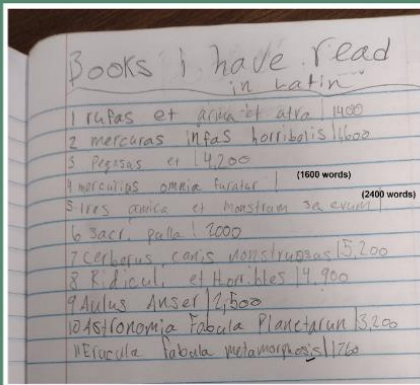 Books i have read
in Latin
1 rufas et arica et atra | 1400
2 mercuras infas horribolis | 1600
3 Pegasas et | 4,200
4 mercurius omnia furatur | (1600 words)
5 tres amica et monstram saevum | (2400 words)
6 Sacr. palla | 2000
7 Cerberus canis monstruosas | 5,200
8 Ridicul. et Horribles | 4,900
9 Aulus Anser | 2,500
10 Astronomia Fabula Planetarun | 3,200
11 Erucula fabula metamorphosis | 1760